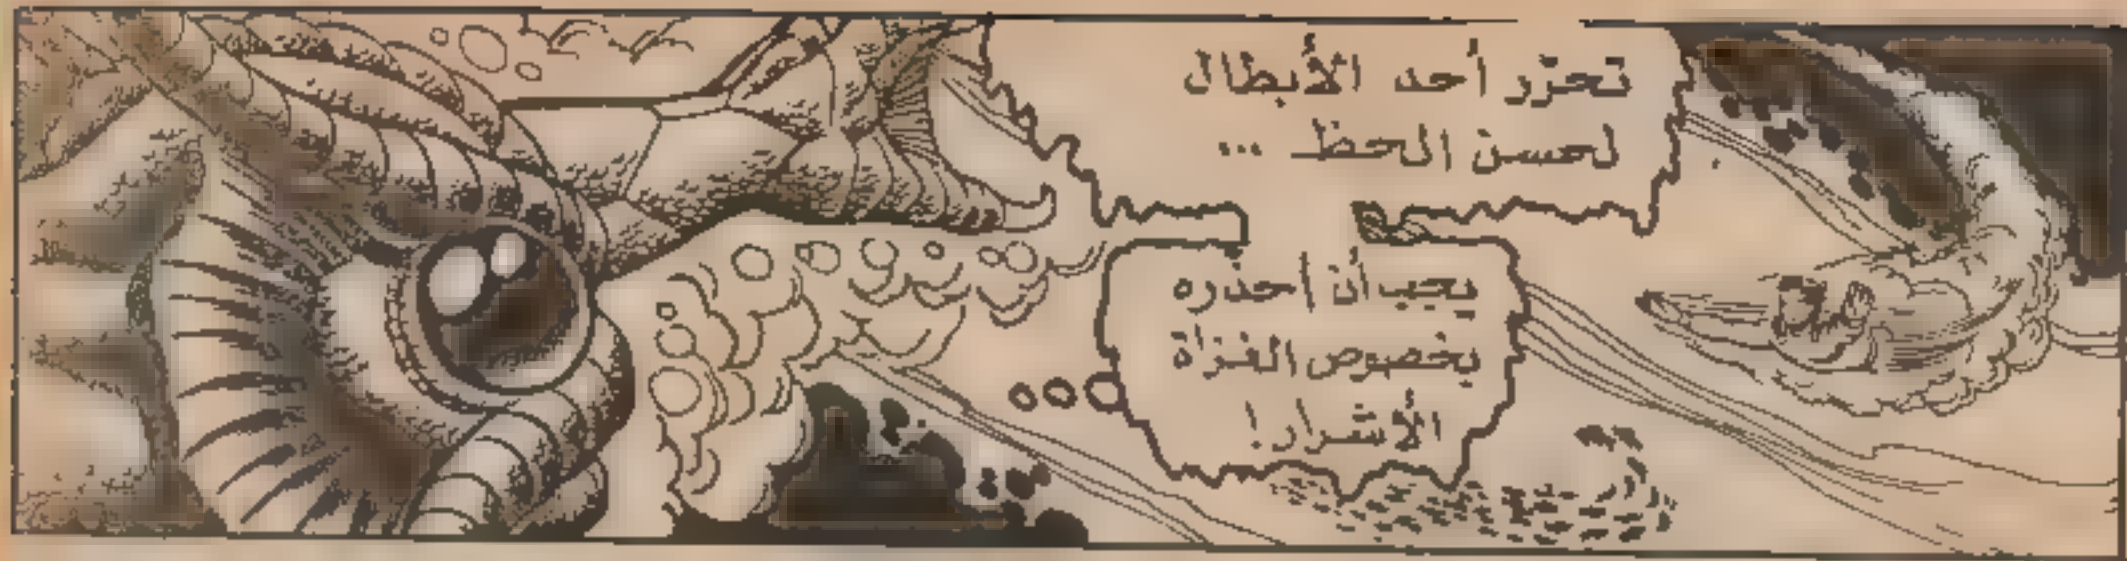 تحرّر أحد الأبطال
لحسن الحظ ...
يجب أن أحذره
بخصوص الغزاة
الأشرار!